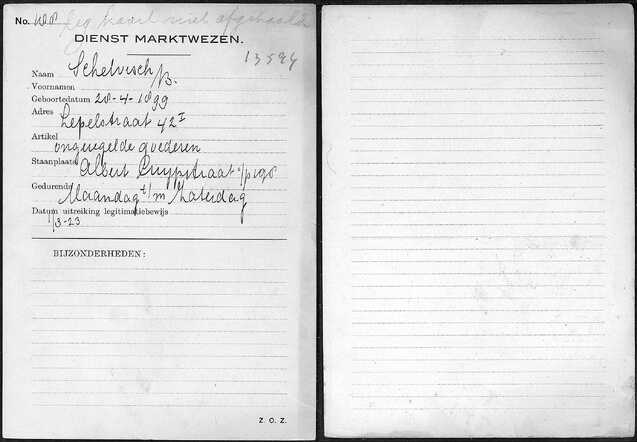 No. 108 Leg kaart niet afgehaald
DIENST MARKTWEZEN.
13594
Naam Schelvisch
Voornamen B.
Geboortedatum 28-4-1899
Adres
Lepelstraat 42 I
Artikel
ongeregelde goederen
Staanplaats Albert Cuypstraat
Gedurende Maandag t/m Zaterdag
Datum uitreiking legitimatiebewijs
1/3-23
BIJZONDERHEDEN:
Z. O. Z.